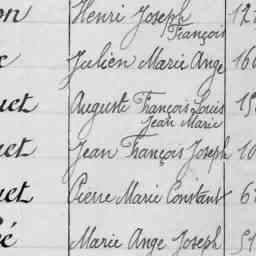 on Henri Joseph 12
François
Julien Marie Ange 16
uet Auguste François Louis 15
Jean Marie
uet Jean François Joseph 10
uet Pierre Marie Constant 6
é Marie Ange Joseph 51